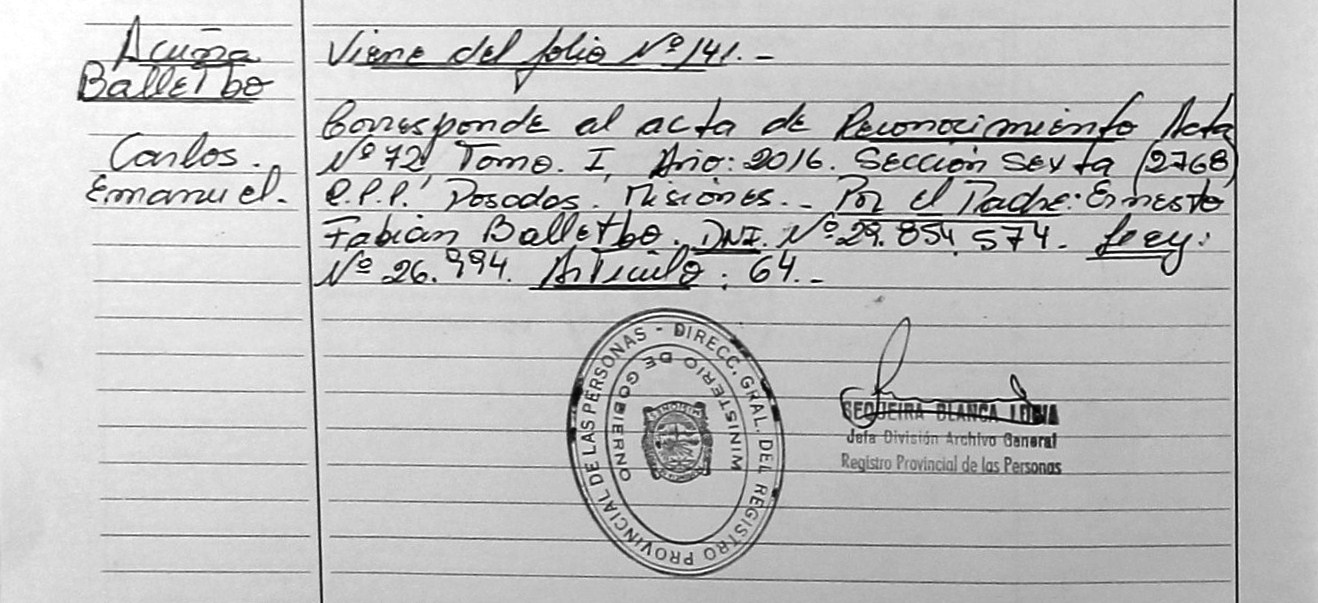 Acuña
Balletbo
Carlos.
Emanuel.
Viene del folio Nº 141.-
Corresponde al acta de Reconocimiento Acta
Nº 72 Tomo. I, Año: 2016. Sección Sexta (2768)
R.P.P. Posadas. Misiones.- Por el Padre: Ernesto
Fabián Balletbo. DNI. Nº 29.854.574. Ley:
Nº 26.994. Artículo: 64.-
DIRECC. GRAL. DEL REGISTRO PROVINCIAL DE LAS PERSONAS -
MINISTERIO DE GOBIERNO
MISIONES
SEQUEIRA BLANCA
Jefa División Archivo General
Registro Provincial de las Personas